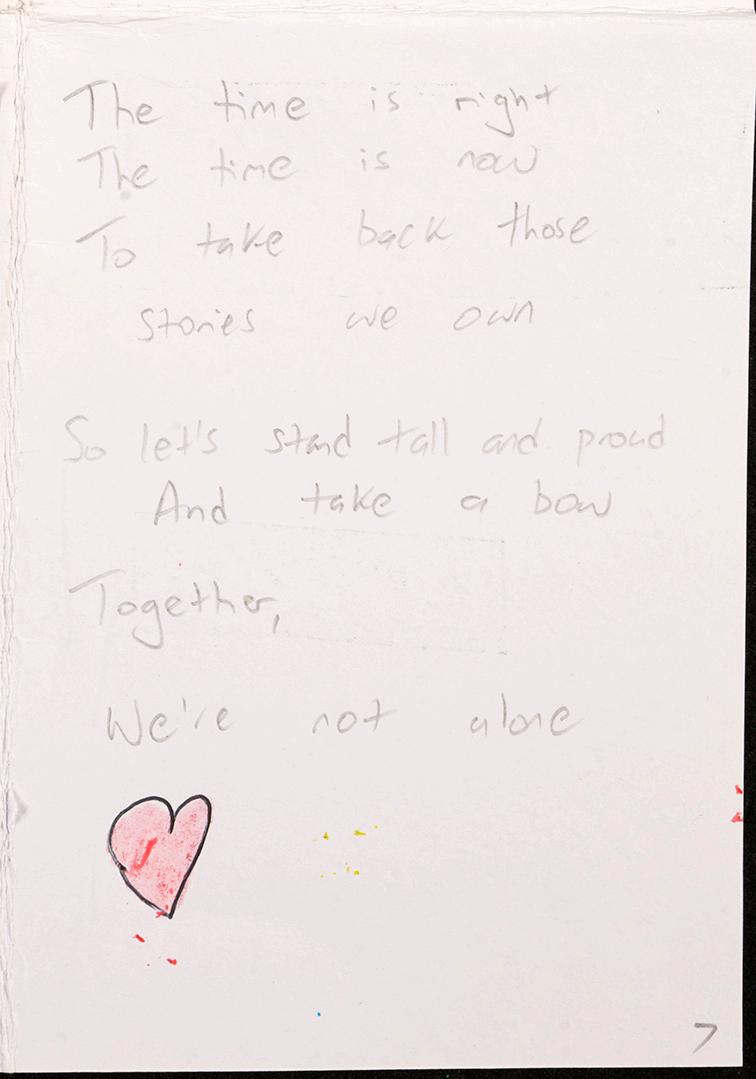 The time is right
The time is now
To take back those
stories we own
So let's stand tall and proud
And take a bow
Together,
We're not alone
7